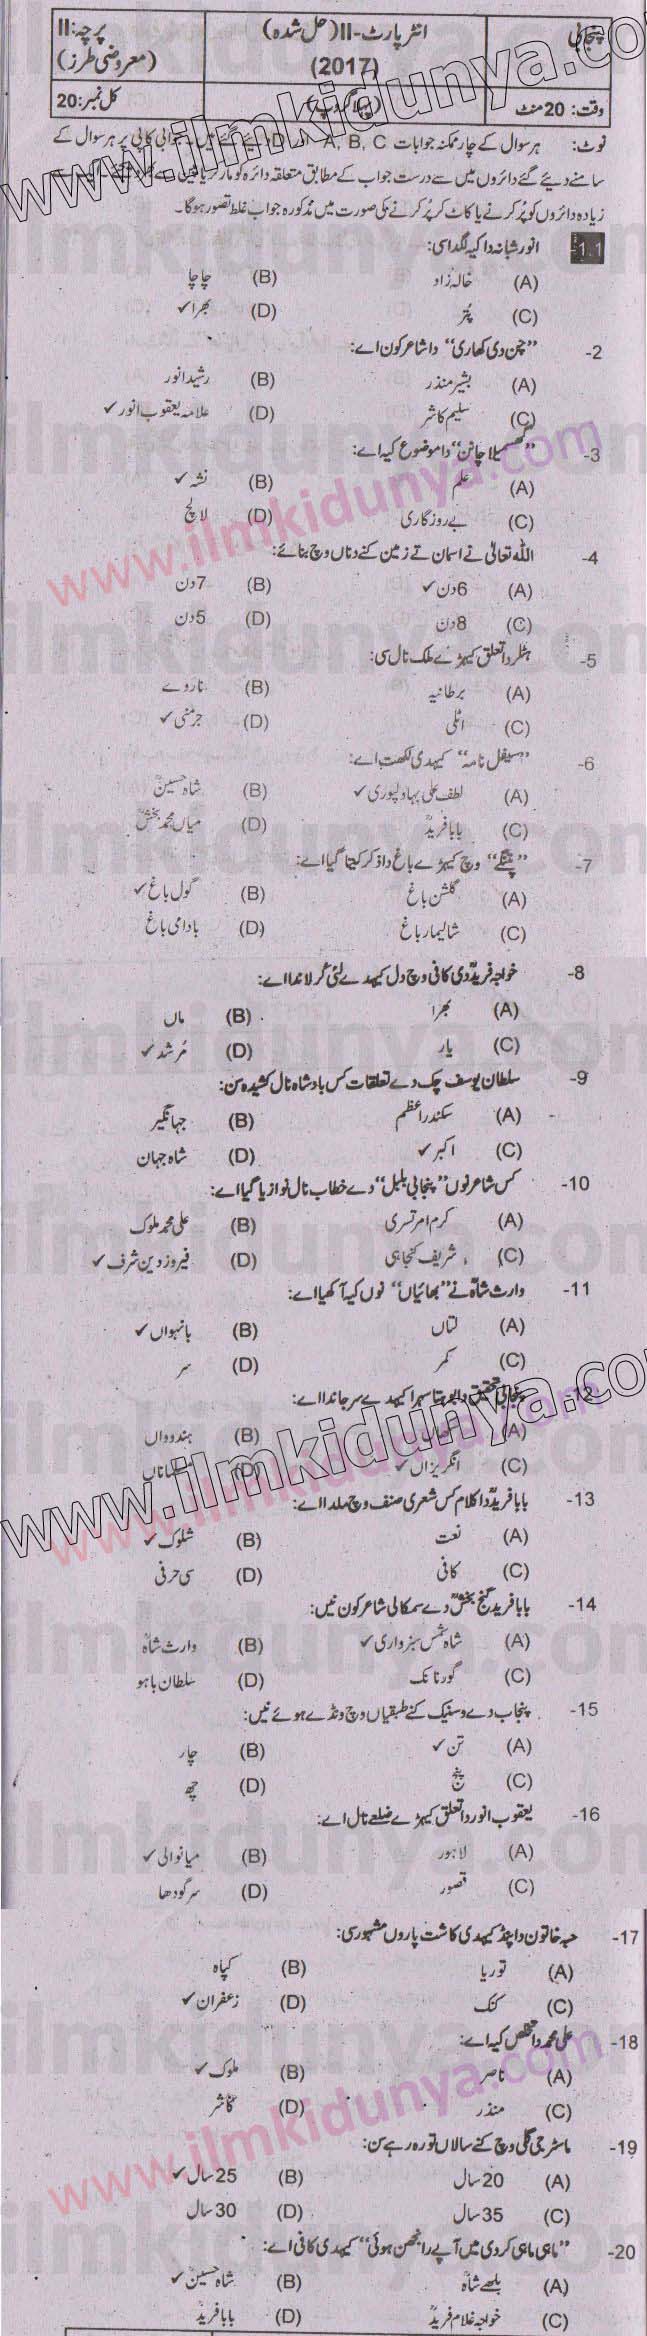 پنجابی انٹر پارٹ-II (حل شدہ) پرچہ: II
(2017) (معروضی طرز)
وقت: 20 منٹ پہلا گروپ کل نمبر: 20
نوٹ: ہر سوال کے چار ممکنہ جوابات A, B, C اور D دیئے گئے ہیں۔ جوابی کاپی پر ہر سوال کے
سامنے دیئے گئے دائروں میں سے درست جواب کے مطابق متعلقہ دائرہ کو مارکر یا پین سے بھر دیجئے۔
زیادہ دائروں کو پُر کرنے یا کاٹ کر پُر کرنے کی صورت میں مذکورہ جواب غلط تصور ہوگا۔
1.1- انور شبانہ دا کیہ لگدا سی:
(A) خالہ زاد (B) چاچا
(C) پُتر (D) بھرا ✓
2- "چن دی کھاری" دا شاعر کون اے:
(A) بشیر منذر (B) رشید انور
(C) سلیم کاشر (D) علامہ یعقوب انور ✓
3- "گھسمیلا چانن" دا موضوع کیہ اے:
(A) علم (B) نشہ ✓
(C) بے روزگاری (D) لالچ
4- اللہ تعالیٰ نے اسمان تے زمین کنے دناں وچ بنائے:
(A) 6 دن ✓ (B) 7 دن
(C) 8 دن (D) 5 دن
5- ہٹلر دا تعلق کیہڑے ملک نال سی:
(A) برطانیہ (B) ناروے
(C) اٹلی (D) جرمنی ✓
6- "سیفل نامہ" کیہدی لکھت اے:
(A) لطف علی بہاولپوری ✓ (B) شاہ حسینؒ
(C) بابا فریدؒ (D) میاں محمد بخشؒ
7- "پتنگے" وچ کیہڑے باغ دا ذکر کیتا گیا اے:
(A) گلشن باغ (B) گول باغ ✓
(C) شالیمار باغ (D) بادامی باغ
8- خواجہ فریدؒ دی کافی وچ دل کیہدے لئی کُرلاندا اے:
(A) بھرا (B) ماں
(C) یار (D) مُرشد ✓
9- سلطان یوسف چک دے تعلقات کس بادشاہ نال کشیدہ سن:
(A) سکندر اعظم (B) جہانگیر
(C) اکبر ✓ (D) شاہ جہان
10- کس شاعر نوں "پنجابی بلبل" دے خطاب نال نوازیا گیا اے:
(A) کرم امرتسری (B) علی محمد ملوک
(C) شریف کنجاہی (D) فیروز دین شرف ✓
11- وارث شاہؒ نے "بھائیاں" نوں کیہ آکھیا اے:
(A) لتاں (B) بانہواں ✓
(C) کمر (D) سر
12- پنجابی تحقیق دا بوہتا سہرا کیہدے سر جاندا اے:
(A) (B) ہندوواں
(C) انگریزاں ✓ (D) مسلماناں
13- بابا فریدؒ دا کلام کس شعری صنف وچ ملدا اے:
(A) نعت (B) شلوک ✓
(C) کافی (D) سی حرفی
14- بابا فرید گنج بخشؒ دے سمکالی شاعر کون نیں:
(A) شاہ شمس سبزواری ✓ (B) وارث شاہؒ
(C) گورنانک (D) سلطان باہو
15- پنجاب دے وسنیک کنے طبقیاں وچ ونڈے ہوئے نیں:
(A) تن ✓ (B) چار
(C) پنج (D) چھ
16- یعقوب انور دا تعلق کیہڑے ضلعے نال اے:
(A) لاہور (B) میانوالی ✓
(C) قصور (D) سرگودھا
17- حبہ خاتون دا پنڈ کیہدی کاشت پاروں مشہور سی:
(A) توریا (B) کپاہ
(C) کنک (D) زعفران ✓
18- علی محمد دا تخلص کیہ اے:
(A) ناصر (B) ملوک ✓
(C) منذر (D) کاشر
19- ماسٹر جی گلی وچ کنے سالاں توں رہ رہے سن:
(A) 20 سال (B) 25 سال ✓
(C) 35 سال (D) 30 سال
20- "ماہی ماہی کردی میں آپے رانجھن ہوئی" کیہدی کافی اے:
(A) بلھے شاہؒ (B) شاہ حسینؒ ✓
(C) خواجہ غلام فریدؒ (D) بابا فریدؒ
www.ilmkidunya.com